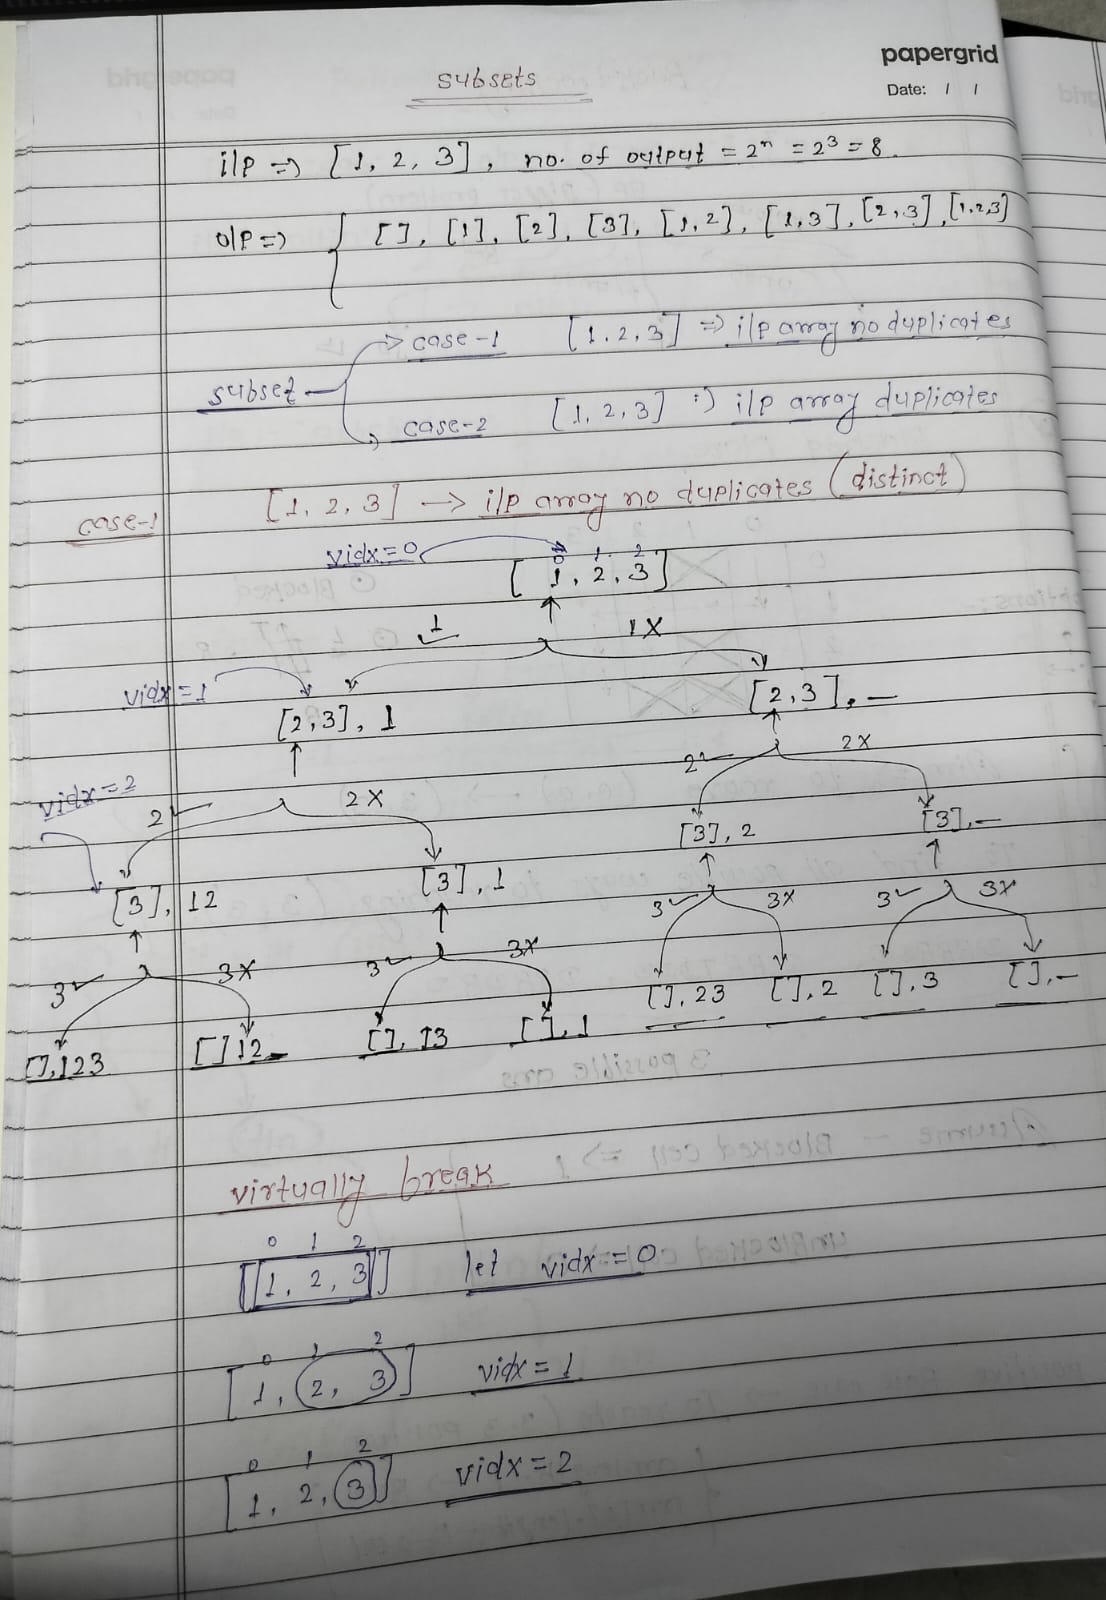 papergrid
Date: / /
subsets
i/p => [1, 2, 3], no. of output = 2ⁿ = 2³ = 8.
o/p => { [], [1], [2], [3], [1,2], [1,3], [2,3], [1,2,3]
subset
-> case-1 [1,2,3] => i/p array no duplicates
-> case-2 [1,2,3] :) i/p array duplicates
case-1 [1, 2, 3] -> i/p array no duplicates (distinct)
vidx=0
0 1 2
[1, 2, 3]
1 ✓ 1 X
vidx=1
[2,3], 1 [2,3], —
2 ✓ 2X
vidx=2
2 ✓ 2X
[3], 2 [3], —
[3], 12 [3], 1
3 ✓ 3X 3 ✓ 3X
3 ✓ 3X 3 ✓ 3X
[], 23 [], 2 [], 3 [], —
[], 123 [] 12 [], 13 [], 1
virtually break
0 1 2
[1, 2, 3] let vidx = 0
0 1 2
[1, 2, 3] vidx = 1
0 1 2
[1, 2, 3] vidx = 2